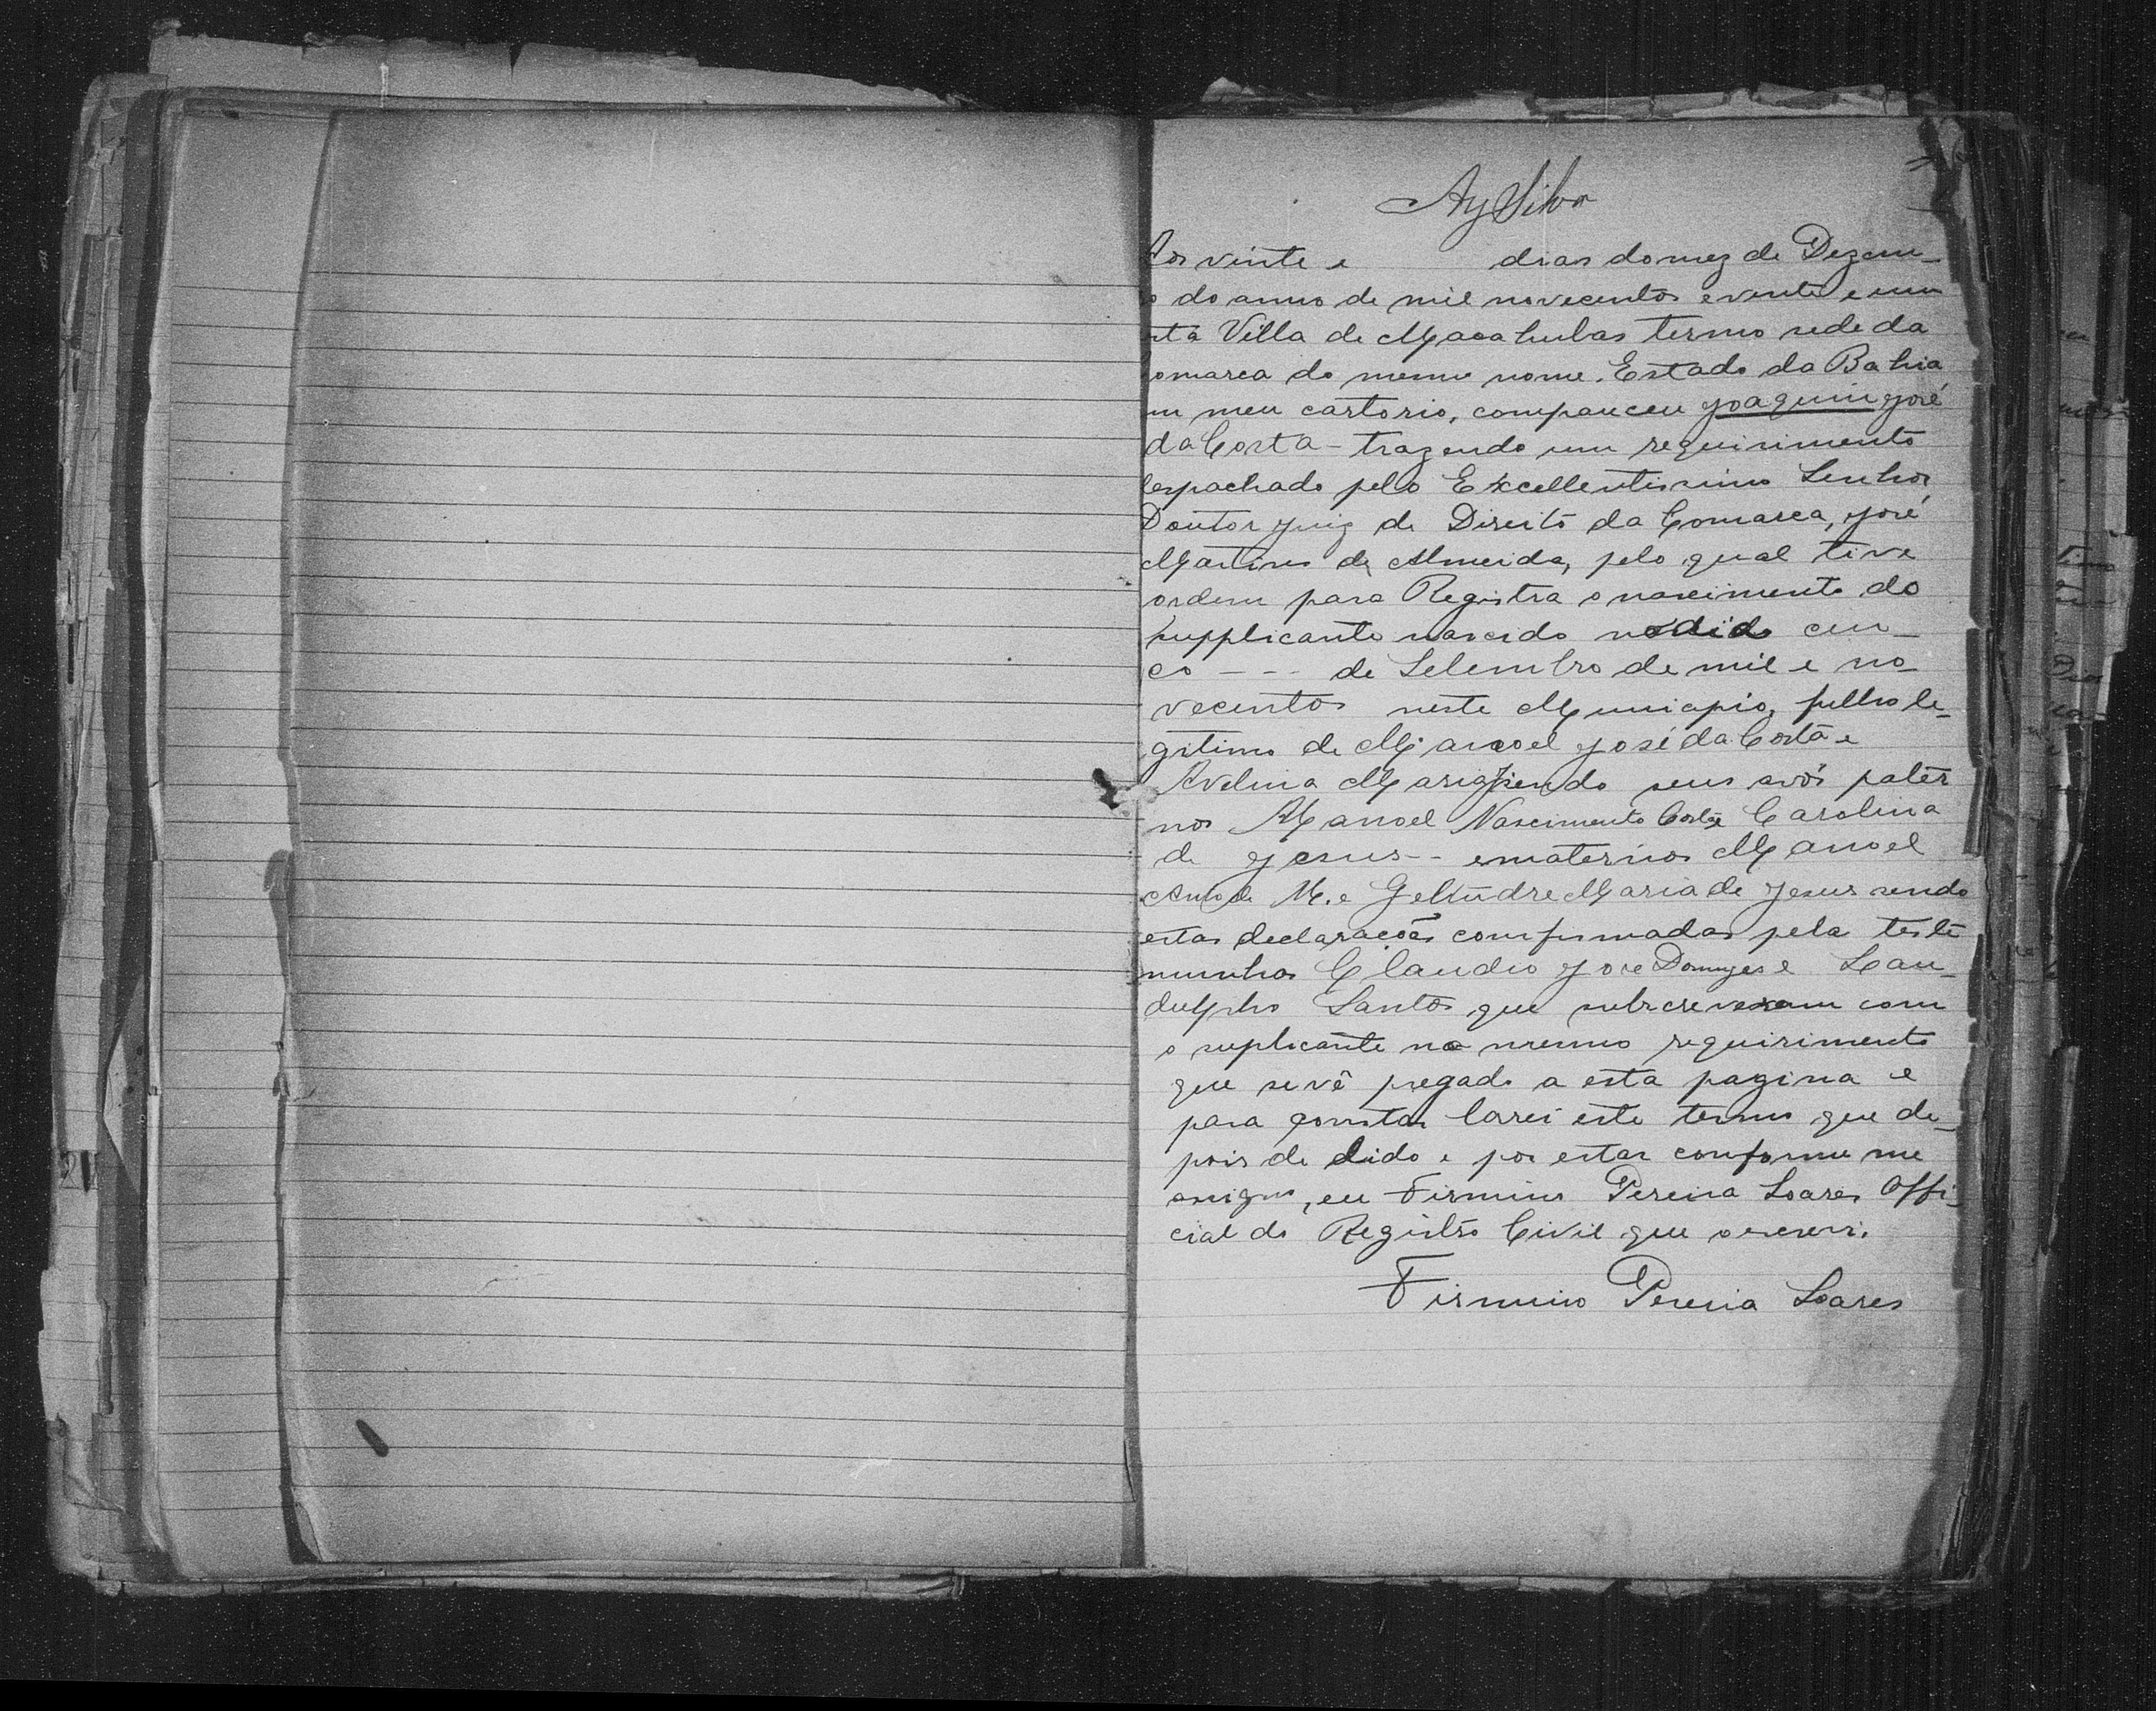 Ay Silva
Aos vinte e dias do mez de Dezem-
o do anno de mil novecentos e vinte e um
sta Villa de Macahubas termo sede da
omarca do mesmo nome. Estado da Bahia
m meu cartorio, compareceu Joaquim José
da Costa - trazendo um requirimento
despachado pelo Excellentissimo Senhor
Doutor Juiz de Direito da Comarca, José
Martins de Almeida, pelo qual tive
ordem para Registra o nascimento do
supplicante nascido no dia cin-
co - - - de Setembro de mil e no-
vecentos neste Municipio, filho le-
gitimo de Manoel José da Costa e
Avelina Maria sendo seus avós pater
nos Manoel Nascimento Costa e Carolina
de Jesus - - e maternos Manoel
M. e Geltudre Maria de Jesus sendo
estas declarações comfirmadas pela teste
munhas Claudio Jose Domges e Lau-
dulpho Santos que subscreveram com
o suplicante no mesmo requirimento
que se vê pregado a esta pagina e
para constar lavrei este termo que de-
pois de lido e por estar conforme me
assigno, eu Firmino Pereira Soares Offi-
cial do Registro Civil que o escrevi.
Firmino Pereira Soares